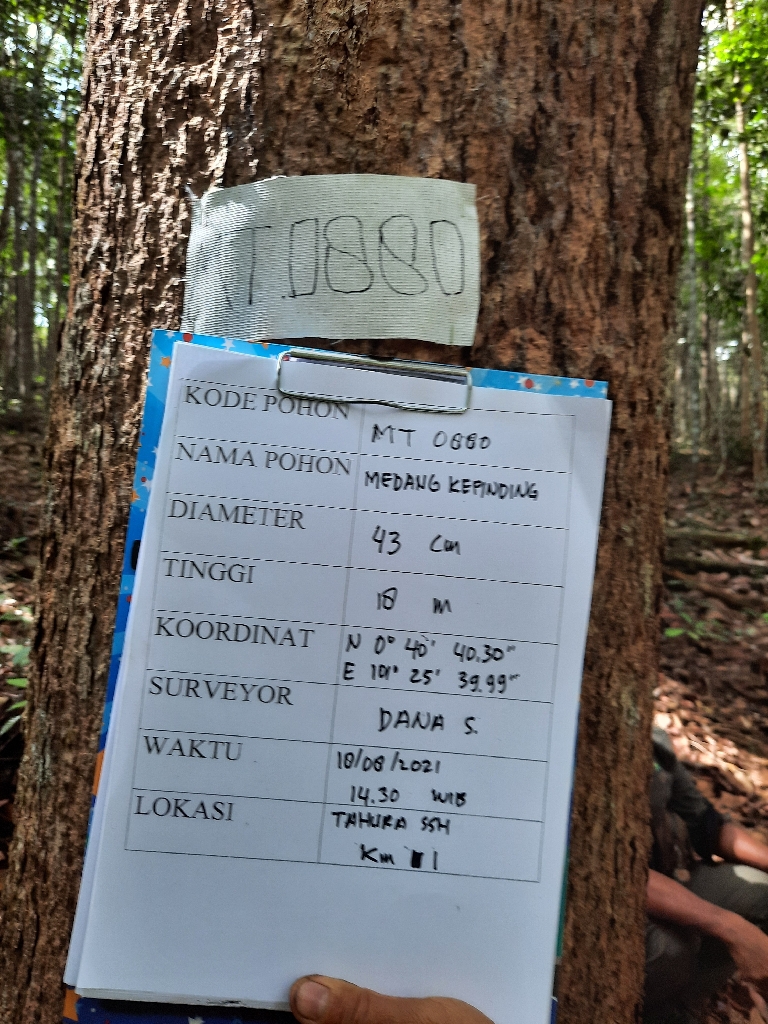 MT.0880
KODE POHON MT 0880
NAMA POHON MEDANG KEPINDING
DIAMETER 43 cm
TINGGI 18 m
KOORDINAT N 0° 40' 40.30"
E 101° 25' 39.99"
SURVEYOR DANA S.
WAKTU 18/08/2021
14.30 WIB
LOKASI TAHURA SSH
Km 1